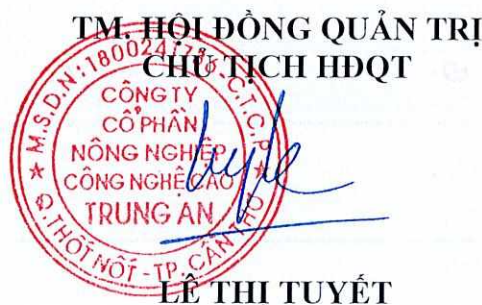 TM. HỘI ĐỒNG QUẢN TRỊ
CHỦ TỊCH HĐQT
M.S.D.N:1800241736-C.T.C.P
CÔNG TY
CỔ PHẦN
NÔNG NGHIỆP
CÔNG NGHỆ CAO
TRUNG AN
Q.THỐT NỐT-TP. CẦN THƠ
LÊ THỊ TUYẾT